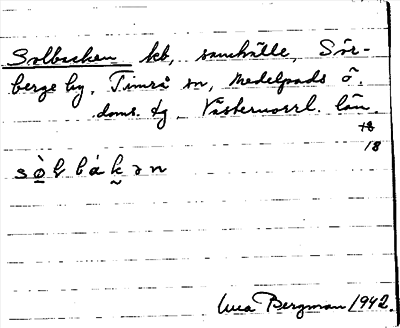 Solbacken kb, samhälle, Sör-
berge by, Timrå sn, Medelpads ö.
doms. tg Västernorrl. län.
18
18
sò̱ɫbákən
Bergman 1942.